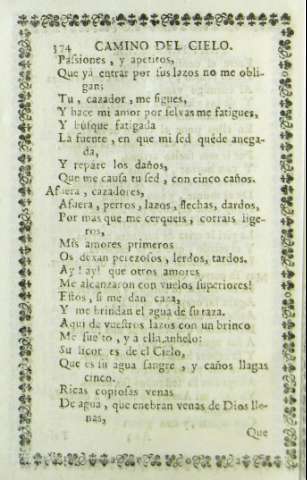 374 CAMINO DEL CIELO.
Passiones, y apetitos,
Que yá entrar por sus lazos no me obli-
gan;
Tu, cazador, me sigues,
Y hace mi amor por selvas me fatigues,
Y busque fatigada
La fuente, en que mi sed quéde anega-
da,
Y repare los daños,
Que me causa tu sed, con cinco caños.
Afuera, cazadores,
Afuera, perros, lazos, flechas, dardos,
Por mas que me cerqueis, corrais lige-
ros,
Mis amores primeros
Os dexan perezosos, lerdos, tardos.
Ay! ay! que otros amores
Me alcanzaron con vuelos superiores!
Estos, si me dan caza,
Y me brindan el agua de su taza.
Aqui de vuestros lazos con un brinco
Me suelto, y a ella anhelo:
Su licor es de el Cielo,
Que es su agua sangre, y caños llagas
cinco.
Ricas copiosas venas
De agua, que enebran venas de Dios lle-
nas,
Que